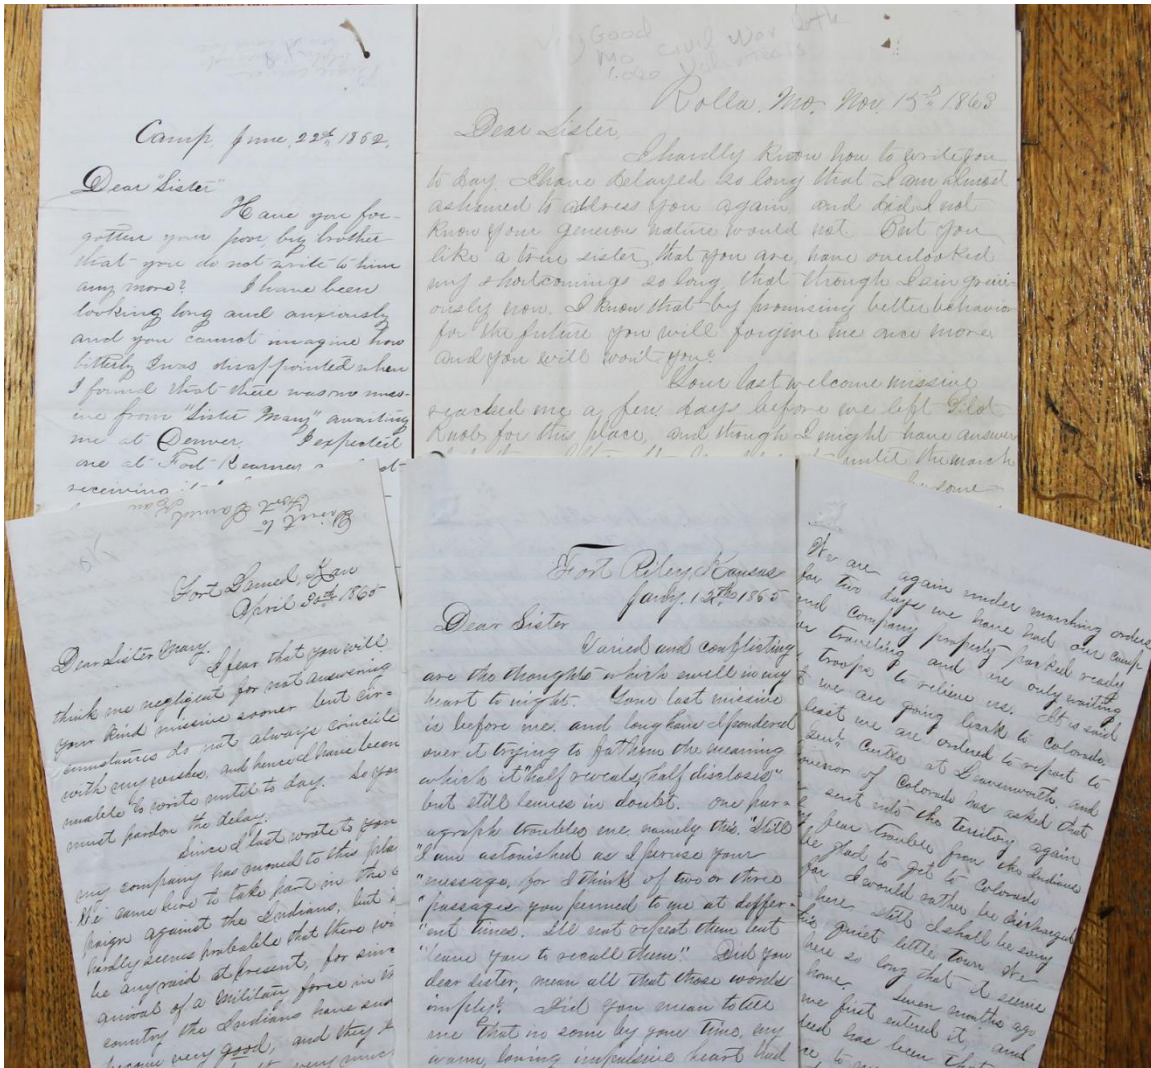 Camp, June, 22th 1862,
Dear "Sister"
Have you for-
gotten your poor, big brother
that you do not write to him
any more? I have been
looking long and anxiously
and you cannot imagine how
bitterly I was disappointed when
I found that there was no miss-
ive from "Sister Mary" awaiting
me at Denver I expected
one at Fort Kearney
receiving it
Very Good
Mo Civil War
Colo Volunteers
Rolla, Mo, Nov. 15th 1863
Dear Sister,
I hardly know how to write you
to day. I have delayed so long that I am almost
ashamed to address you again, and did I not
know your generous nature would not But you
like a true sister, that you are, have overlooked
my shortcomings so long, that though I sin griev-
ously now. I know that by promising better behavior
for the future you will forgive me once more
and you will won't you?
Your last welcome missive
reached me a few days before we left Pilot
Knob for this place, and though I might have answer
until the march
some
Direct to
Fort Larned
Kan
Fort Larned, Kan
April 30th 1865
Dear Sister Mary.
I fear that you will
think me negligent for not answering
your kind missive sooner but cir-
cumstances do not always coincide
with my wishes, and hence I have been
unable to write until to day. So you
must pardon the delay.
Since I last wrote to you
my company has moved to this pla
We came here to take part in the c
paign against the Indians, but i
hardly seems probable that there wi
be any raid at present, for sinc
arrival of a military force in th
country the Indians have sud
become very good, and they
very much
Fort Riley, Kansas
Jany. 12th 1865
Dear Sister
Varied and conflicting
are the thoughts which swell in my
heart to night. Your last missive
is before me, and long have I pondered
over it trying to fathom the meaning
which it "half reveals, half discloses"
but still leaves in doubt. One par-
agraph troubles me, namely this. "Still
"I am astonished as I peruse your
"message, for I think of two or three
"passages you penned to me at differ-
"ent times. I'll not repeat them but
"leave you to recall them". Did you
dear sister, mean all that those words
imply? Did you mean to tell
me that no some by gone time, my
warm, loving impulsive heart had
We are again under marching orders
for two days we have had our camp
and company property packed ready
for traveling and are only waiting
troops to relieve us. It is said
t we are going back to Colorado.
least we are ordered to report to
Gen'l. Curtis at Leavenworth, and
overnor of Colorado has asked that
sent into the territory again
fear trouble from the Indians
be glad to get to Colorado
for I would rather be discharged
here. Still I shall be sorry
this quiet little town We
here so long that it seems
home. Seven months ago
we first entered it, and
deed has been that
to